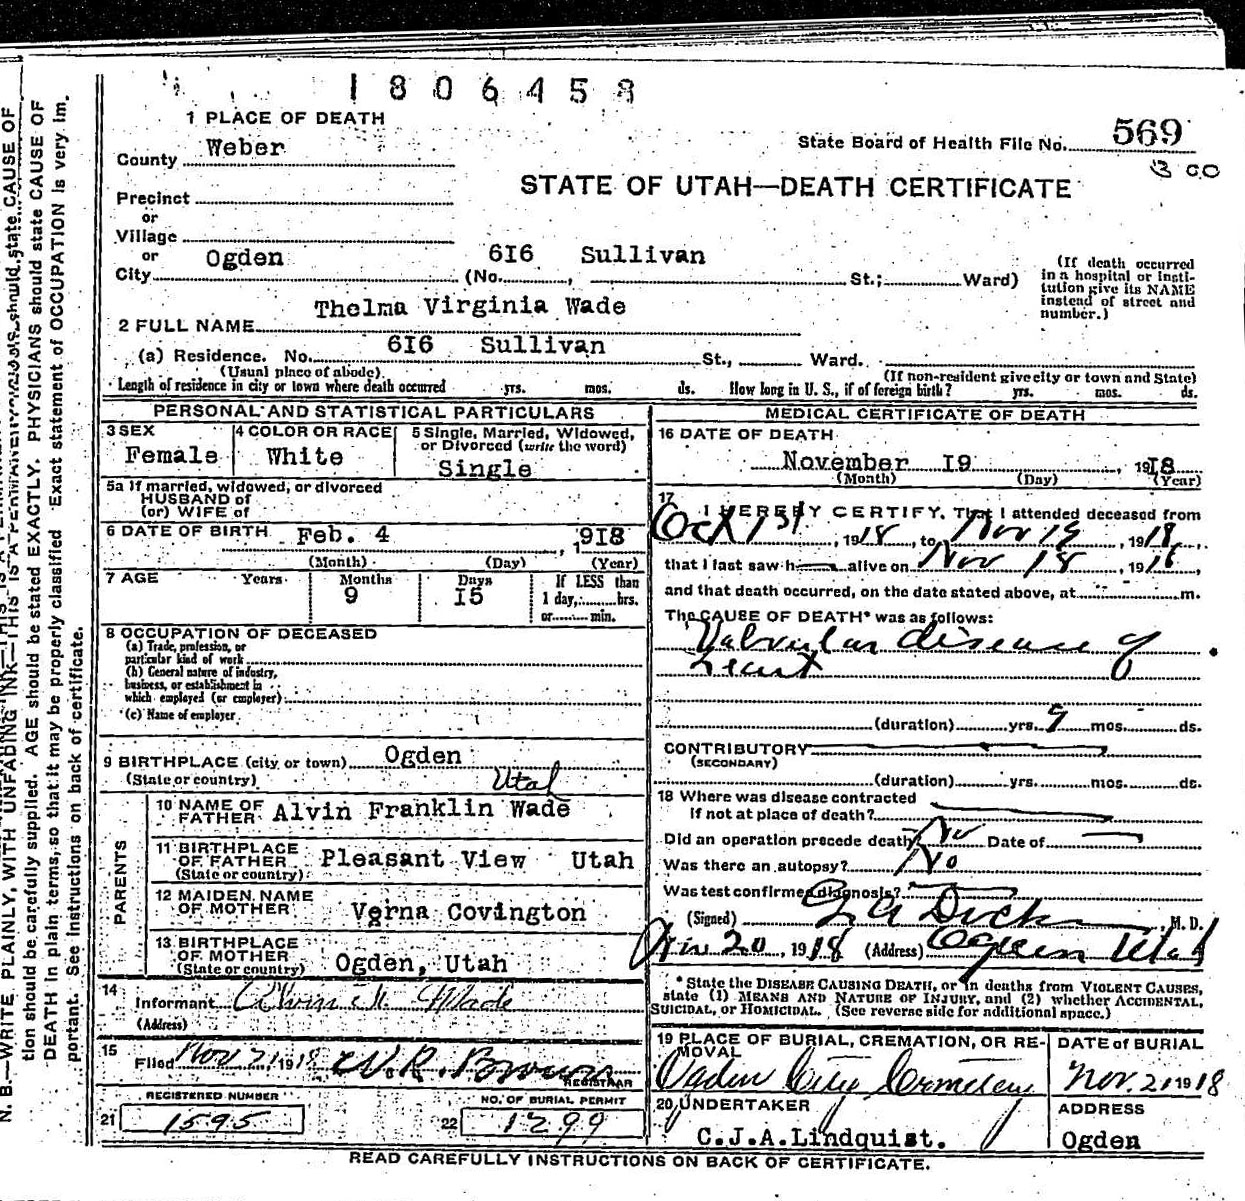 1806458
1 PLACE OF DEATH
State Board of Health File No. 569
County Weber
3 00
STATE OF UTAH—DEATH CERTIFICATE
Precinct
or
Village
or
City Ogden (No. 6I6 Sullivan St.; Ward)
(If death occurred
in a hospital or insti-
tution give its NAME
instead of street and
number.)
2 FULL NAME Thelma Virginia Wade
(a) Residence. No. 6I6 Sullivan St., Ward.
(Usual place of abode) (If non-resident give city or town and State)
Length of residence in city or town where death occurred yrs. mos. ds. How long in U. S., if of foreign birth? yrs. mos. ds.
PERSONAL AND STATISTICAL PARTICULARS
3 SEX
Female
4 COLOR OR RACE
White
5 Single, Married, Widowed,
or Divorced (write the word)
Single
5a If married, widowed, or divorced
HUSBAND of
(or) WIFE of
6 DATE OF BIRTH Feb. 4, 19I8
(Month) (Day) (Year)
7 AGE Years Months Days If LESS than
9 I5 1 day, hrs.
or min.
8 OCCUPATION OF DECEASED
(a) Trade, profession, or
particular kind of work
(b) General nature of industry,
business, or establishment in
which employed (or employer)
(c) Name of employer
9 BIRTHPLACE (city or town) Ogden
(State or country) Utah
PARENTS
10 NAME OF
FATHER Alvin Franklin Wade
11 BIRTHPLACE
OF FATHER Pleasant View Utah
(State or country)
12 MAIDEN NAME
OF MOTHER Verna Covington
13 BIRTHPLACE
OF MOTHER
(State or country) Ogden, Utah
14
Informant Alvin Wade
(Address)
15
Filed Nov 21, 1918 W. R. Brown
REGISTRAR
REGISTERED NUMBER
21 1595
NO. OF BURIAL PERMIT
22 1299
MEDICAL CERTIFICATE OF DEATH
16 DATE OF DEATH
November I9, 19I8
(Month) (Day) (Year)
17
I HEREBY CERTIFY, That I attended deceased from
Oct 1st, 1918, to Nov 19, 1918,
that I last saw h alive on Nov 18, 1918,
and that death occurred, on the date stated above, at m.
The CAUSE OF DEATH* was as follows:
Valvular disease of
heart
(duration) yrs. 9 mos. ds.
CONTRIBUTORY
(SECONDARY)
(duration) yrs. mos. ds.
18 Where was disease contracted
If not at place of death?
Did an operation precede death? No Date of
Was there an autopsy? No
Was test confirmed diagnosis?
(Signed) G A Dick M. D.
Nov 20, 1918 (Address) Ogden Utah
* State the DISEASE CAUSING DEATH, or in deaths from VIOLENT CAUSES,
state (1) MEANS AND NATURE OF INJURY, and (2) whether ACCIDENTAL,
SUICIDAL, or HOMICIDAL. (See reverse side for additional space.)
19 PLACE OF BURIAL, CREMATION, OR RE-
MOVAL
Ogden City Cemetery
DATE of BURIAL
Nov. 21 1918
20 UNDERTAKER
C.J.A.Lindquist.
ADDRESS
Ogden
READ CAREFULLY INSTRUCTIONS ON BACK OF CERTIFICATE.
tion should be carefully supplied. AGE should be stated EXACTLY. PHYSICIANS should state CAUSE OF
DEATH in plain terms, so that it may be properly classified Exact statement of OCCUPATION is very im.
portant. See Instructions on back of certificate.